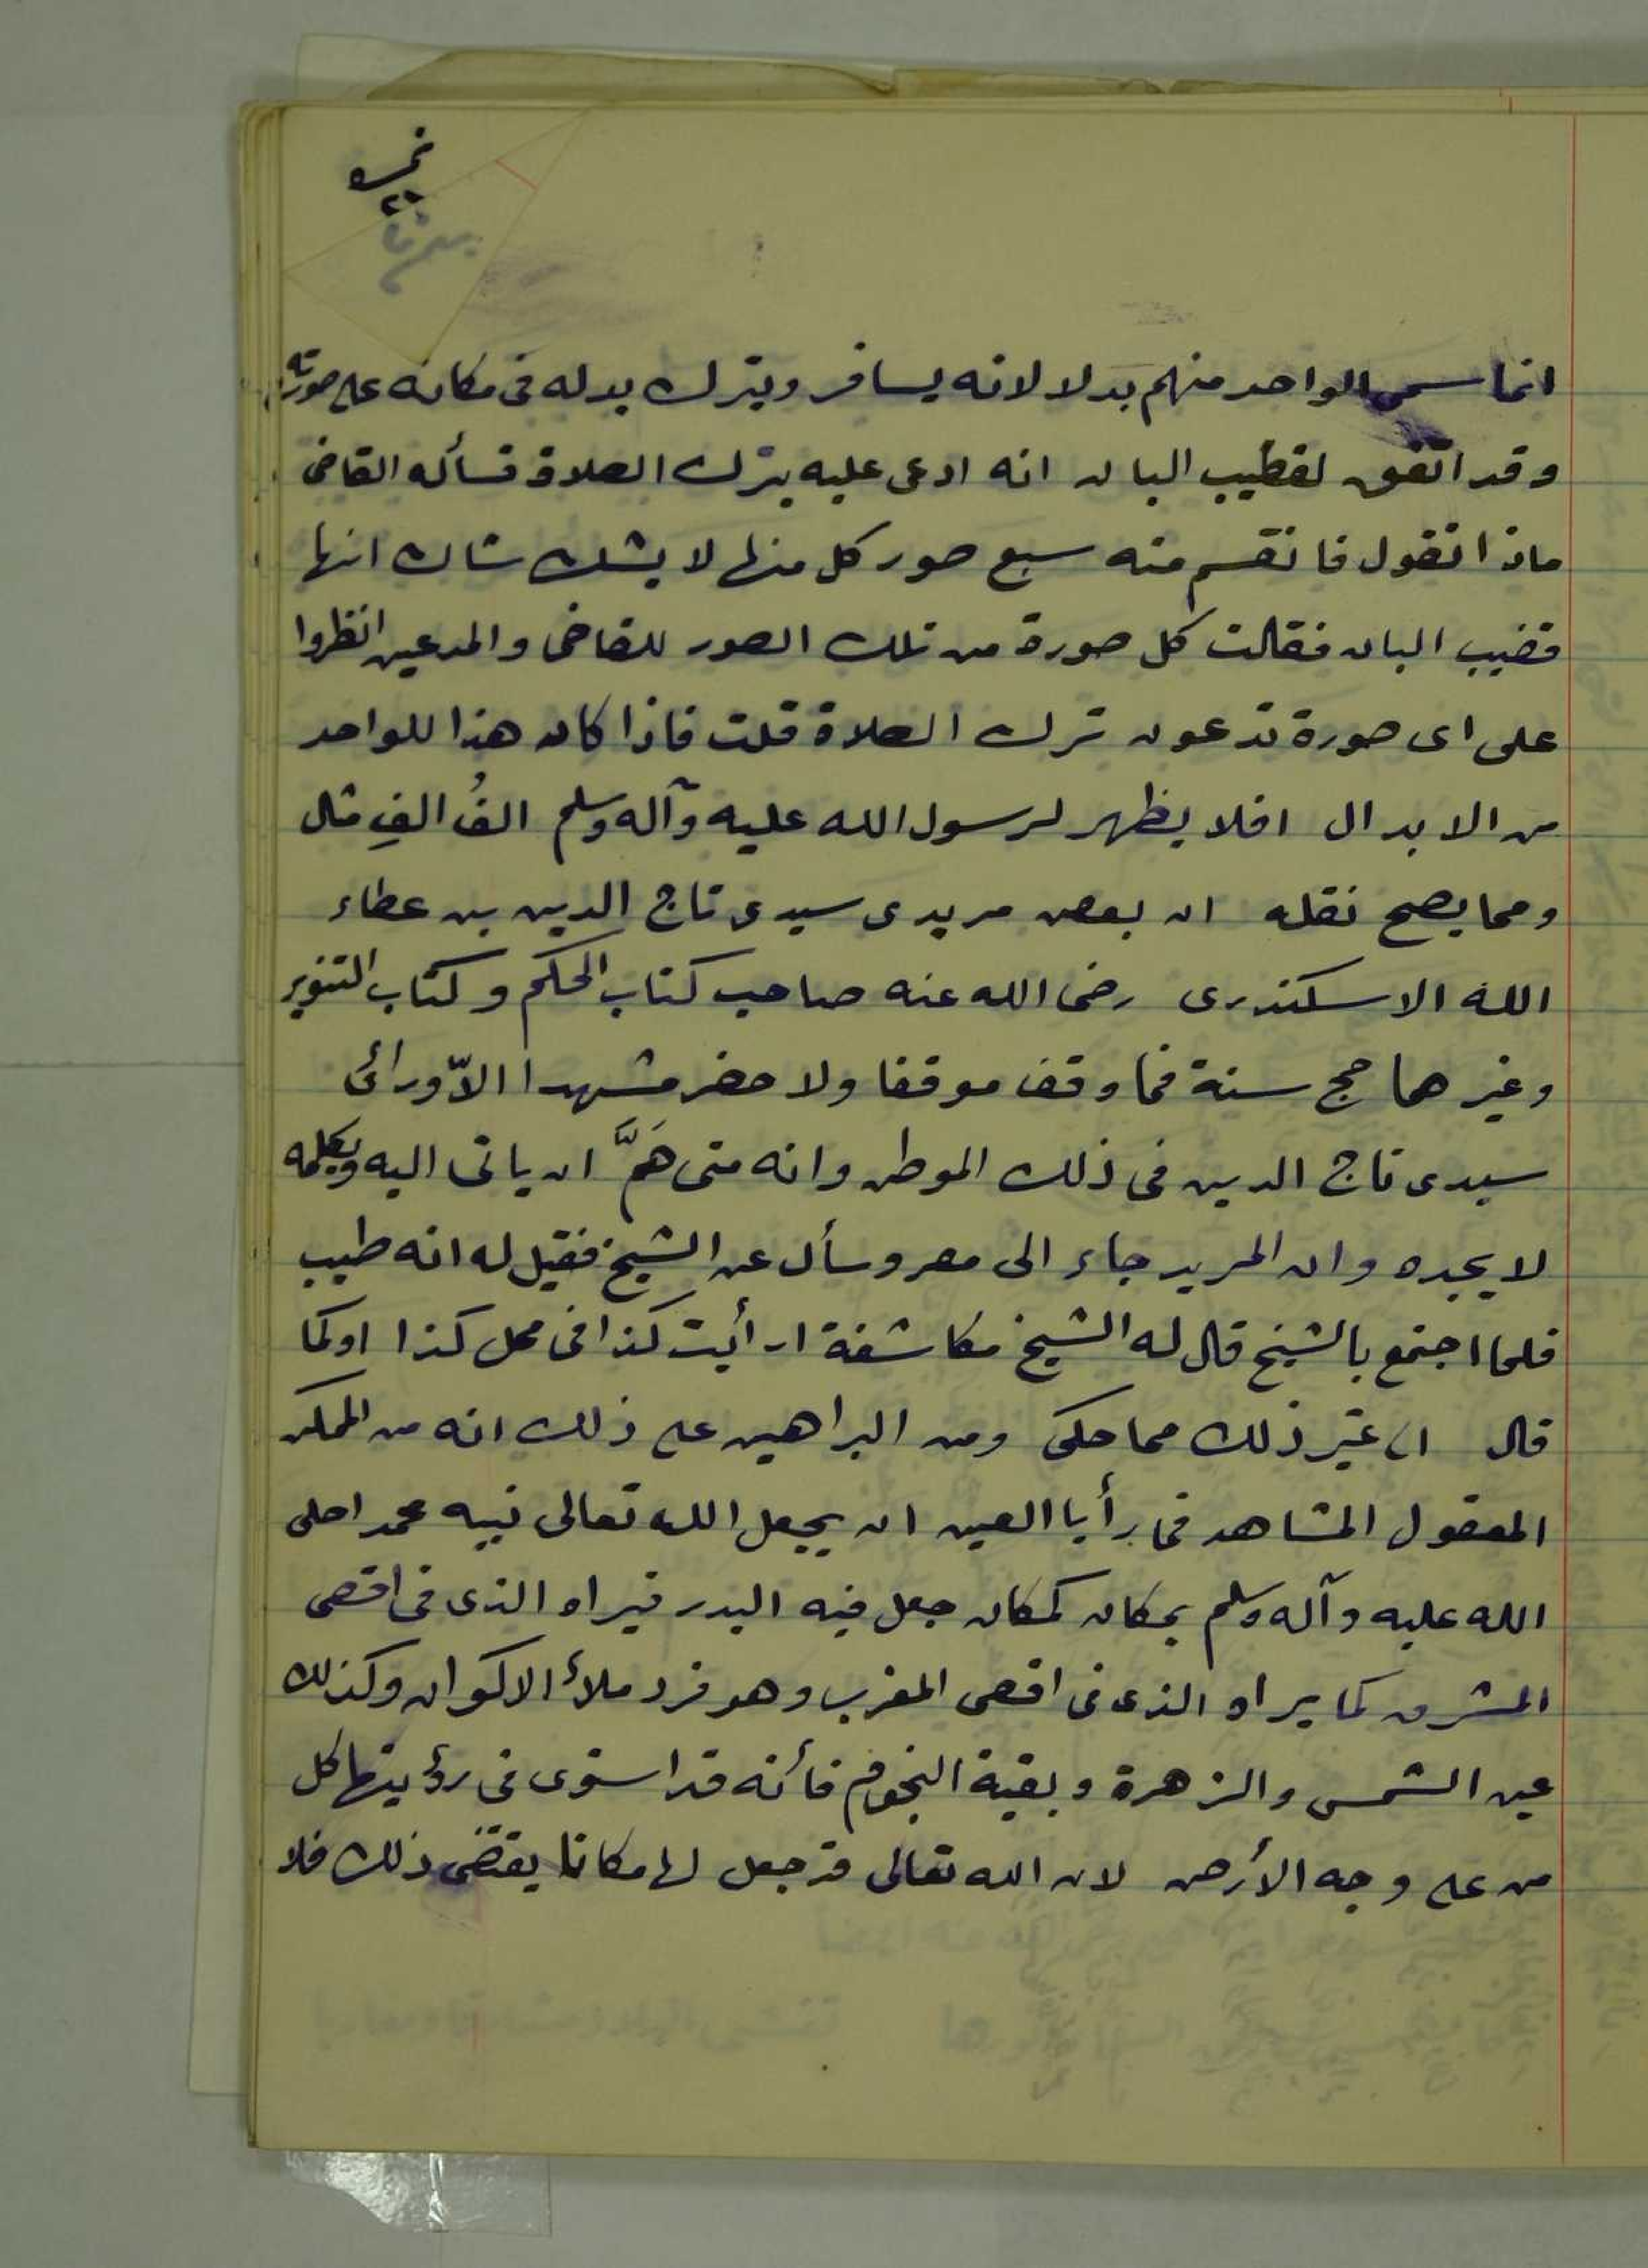 انما سمى الواحد منهم بدلا لانه يسافر ويترك بدله فى مكانه على صورته
وقد اتفق لقطيب البان انه ادعى عليه بترك الصلاة فسأله القاضى
ماذا تقول فانقسم منه سبع صور كل منها لا يشك شاك انها
قضيب البان فقالت كل صورة من تلك الصور للقاضى والمدعين انظروا
على اى صورة تدعون ترك الصلاة قلت فاذا كان هذا للواحد
من الابدال افلا يظهر لرسول الله عليه وآله وسلم الفُ الفِ مثال
ومما يصح نقله ان بعض مريدى سيدى تاج الدين بن عطاء
الله الاسكندرى رضى الله عنه صاحب كتاب الحكم وكتاب التنوير
وغيرهما حج سنة فما وقف موقفا ولا حضر مشهدا الاّ ورائى
سيدى تاج الدين فى ذلك الموطن وانه متى هَمَّ ان ياتى اليه ويكلمه
لا يجده وان المريد جاء الى مصر وسأل عن الشيخ فقيل له انه طيب
فلما اجتمع بالشيخ قال له الشيخ مكاشفة ارأيت كذا فى محل كذا اوكما
قال الى غير ذلك مما حكى ومن البراهين على ذلك انه من الممكن
المعقول المشاهد فى رأيا العين ان يجعل الله تعالى نبيه محمد اصلى
الله عليه وآله وسلم بمكان كمكان جعل فيه البدر فيراه الذى فى اقصى
المشرق كما يراه الذى فى اقصى المغرب وهو فرد ملأ الاكوان وكذلك
عين الشمس والزهرة وبقية النجوم فأنه قد استوى فى رؤيتها كل
من على وجه الأرض لان الله تعالى قد جعل لها مكانا يقتضى ذلك فلا